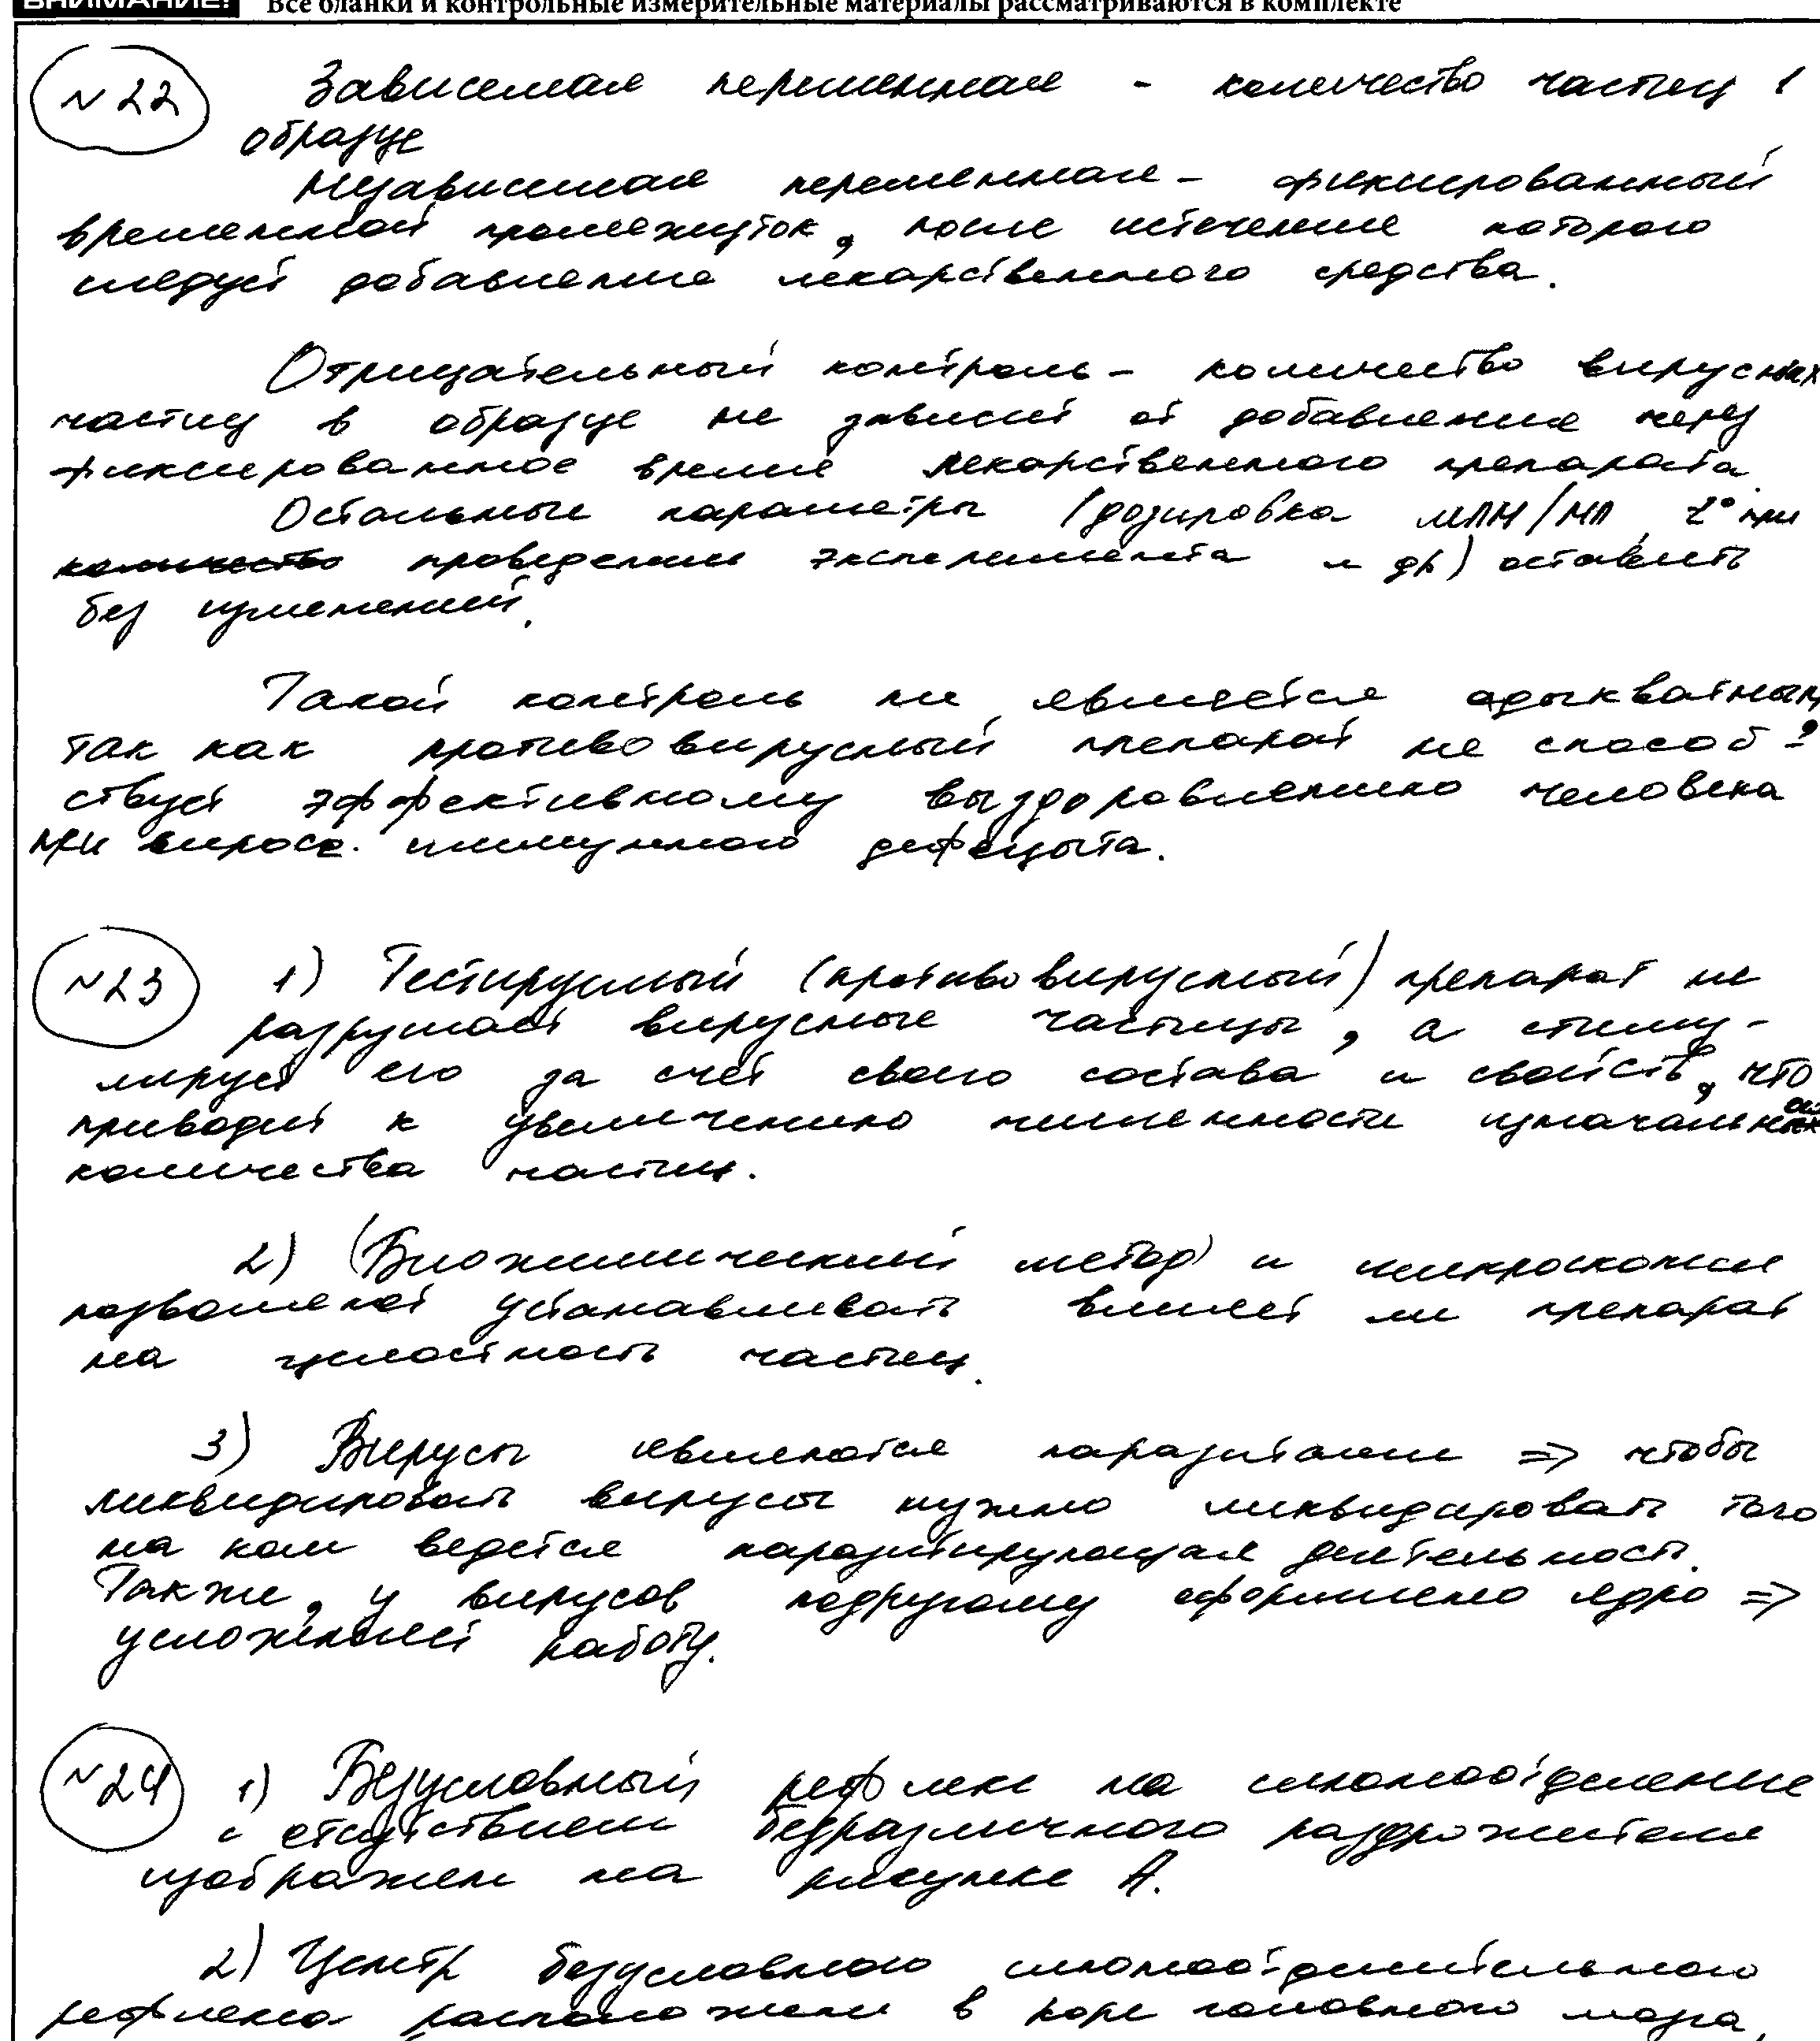 ВНИМАНИЕ! Все бланки и контрольные измерительные материалы рассматриваются в комплекте
№22 Зависимая переменная - количество частиц в
образце
Независимая переменная - фиксированный
временной промежуток, после истечение которого
следует добавление лекарственного средства.
Отрицательный контроль - количество вирусных
частиц в образце не зависит от добавления через
фиксированное время лекарственного препарата.
Остальные параметры (дозировка мпн/мл, t° при
количество проведении эксперимента и др) оставить
без изменений.
Такой контроль не является адыкватным,
так как противовирусный препарат не способ-
ствует эффективному выздоровлению человека
при иммунного дефецыта.
№23 1) Тестируемый (противовирусный) препарат не
разрушает вирусные частицы, а стиму-
лирует его за счёт своего состава и свойств, что
приводит к увеличению численности изначального
количества частиц.
2) (Биохимический метод) и микроскопия
позволяют устанавливать влияет ли препарат
на целостность частиц.
3) Вирусы являются паразитами => чтобы
ликвидировать вирусы нужно ликвидировать того
на ком ведется паразитирующая деятельность.
Также, у вирусов подругому оформлено ядро =>
усложняет работу.
№24 1) Безусловный рефлекс на слюноотделение
с отсутствием безразличного раздрожителя
изображен на рисунке А.
2) Центр безусловного слюноотделительного
рефлекса расположен в коре головного мозга,